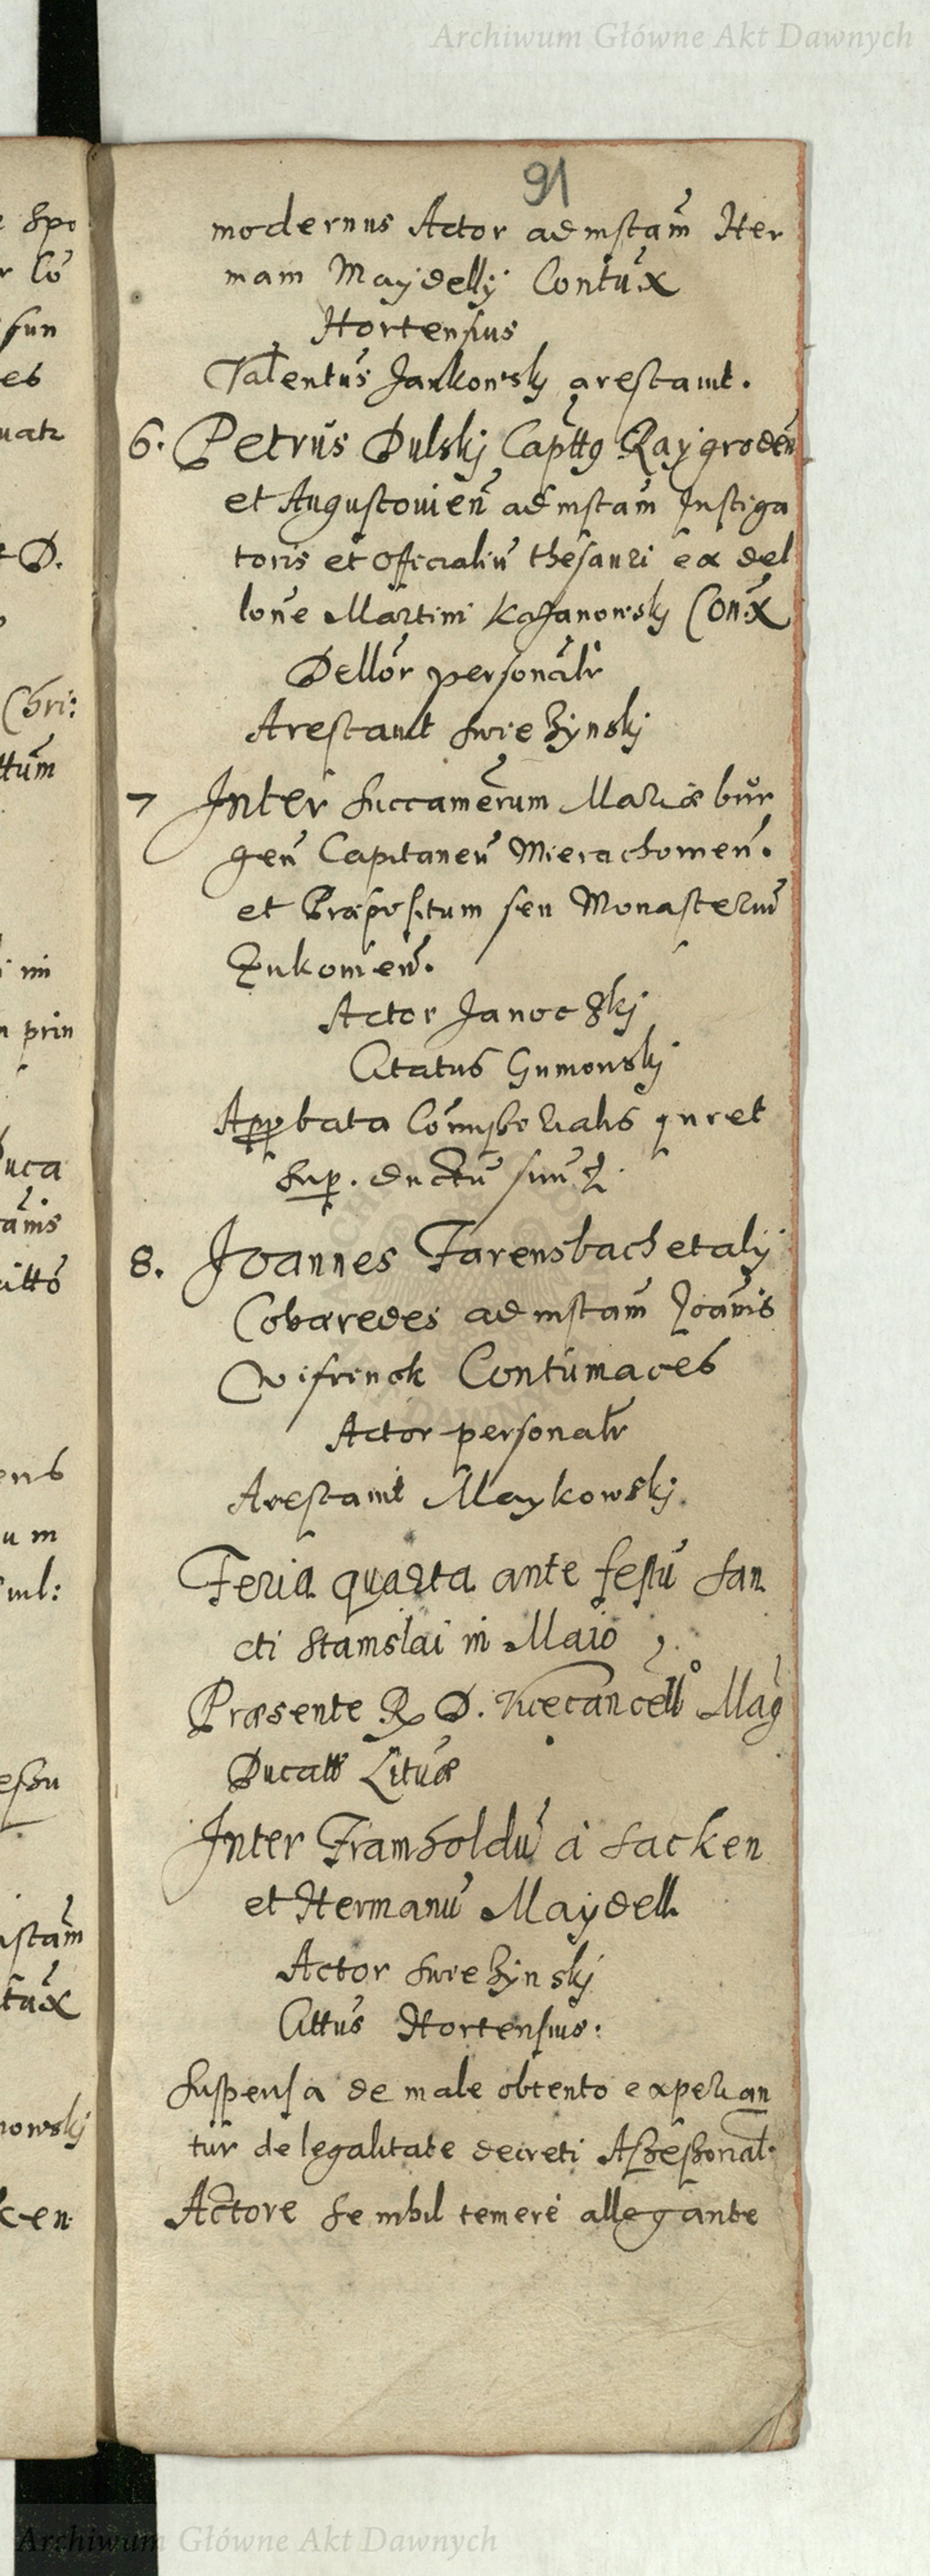 Archiwum Główne Akt Dawnych
91
modernus Actor ad instam Her
mam Maydelly Contux
Hortensius
Valentus Jankowsky arestavit.
6. Petrus Dulskj Capttg Raygroden
et Augustovien ad instam Instiga
toris et Officialiu thesauri ex del
lone Martini Kazanowskj Conx
Dellor personalr
Arestavit Swiezynskj
7 Inter Succamerum Mariæbur
gen Capitaneu Mierachowien.
et Præpositum seu Monasteriu
Zukovien.
Actor Janoczkj
Citatus Gumowskj
Appbata Comissorialis
sup. ductu
8. Joannes Farensbach et alij
Cohæredes ad instam Joanis
Wifrinck Contumaces
Actor personalr
Arestavit Maykowskj.
Feria quarta ante festu San
cti Stanislai in Maio
Præsente R D. Vicecancell Mag
Ducatt Lituæ
Inter Framholdu à Sacken
et Hermanu Maydell
Actor Swiezynskj
Cittus Hortensius.
Suspensa de male obtento experian
tur de legalitate decreti Assessorial.
Actore se nihil temere allegante
Archiwum Główne Akt Dawnych